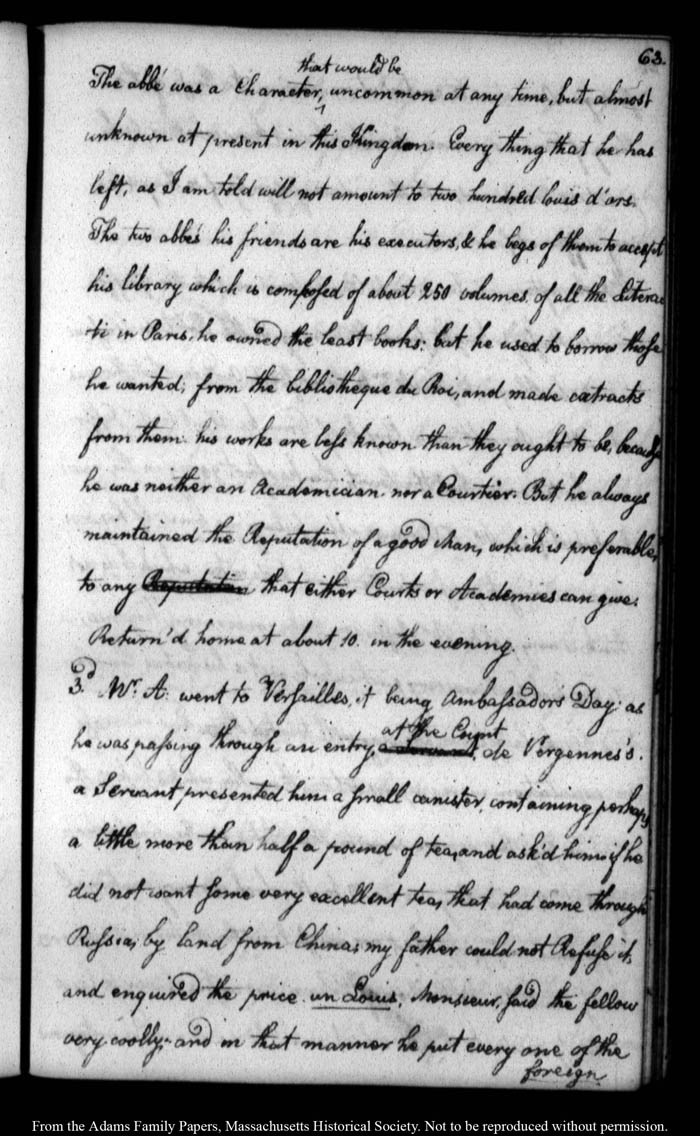 63.
that would be
The abbé was a Character, uncommon at any time, but almost
unknown at present in this Kingdom. Every thing that he has
left, as I am told will not amount to two hundred louis d'ors.
The two abbés his friends are his executors, & he begs of them to accept
his library which is composed of about 250 volumes. of all the Litera
ti in Paris, he owned the least books: but he used to borrow those
he wanted; from the bibliotheque du Roi, and made extracts
from them: his works are less known than they ought to be, because
he was neither an Academician nor a Courtier. But he always
maintained the Reputation of a good Man, which is preferable,
to any Reputation that either Courts or Academies can give.
Return'd home at about 10. in the evening.
3.d Mr. A: went to Versailles, it being Ambassadors Day: as
at the Count
he was passing through an entry, a Servant, de Vergennes's.
a Servant, presented him a small canister, containing perhaps
a little more than half a pound of tea, and ask'd him if he
did not want some very excellent tea, that had come through
Russia, by land from China; my father could not Refuse it,
and enquired the price. un Louis, Monsieur, said the fellow
very coolly: and in that manner he put every one of the
foreign
From the Adams Family Papers, Massachusetts Historical Society. Not to be reproduced without permission.